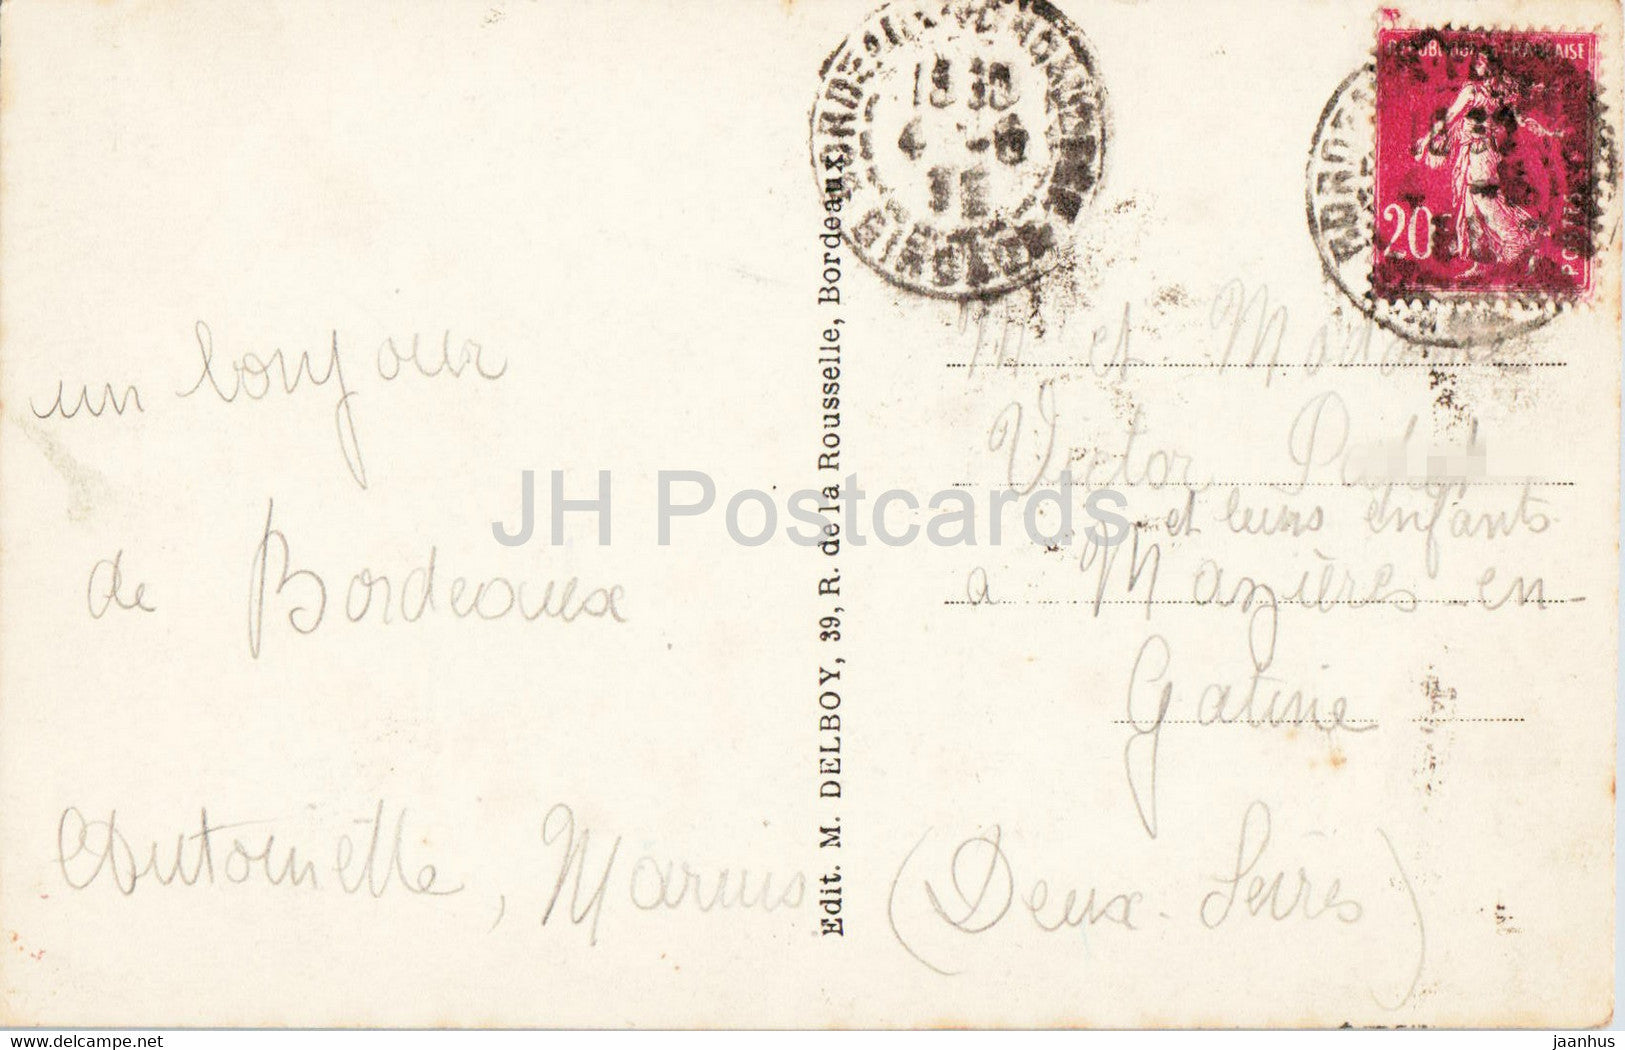 un bonjour
de Bordeaux
Antoinette, Marius
Edit. M. DELBOY, 39, R. de la Rousselle, Bordeaux
18 30
4 -6
REPUBLIQUE FRANÇAISE
18 30
20
POSTES
M et Madame
Victor
et leurs enfants
a Mazières-en-
Gatine
(Deux-Sèvres)
JH Postcards
delcampe.net
jaanhus